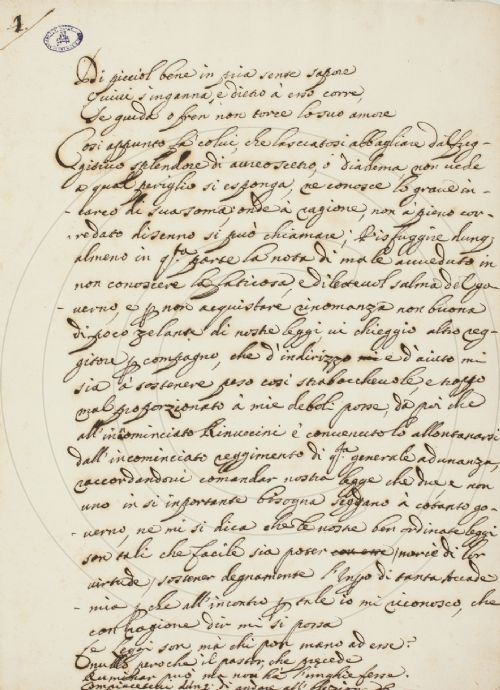 1
Di picciol bene in pria sente sapore
Quivi s'inganna, e dietro à esso corre,
Se guida o fren non torce lo suo amore
Così appunto fà colui, che lasciatosi abbagliare dal fug-
gitivo splendore di aureo scetro, ò Diadema, non vede
a qual periglio si esponga, ne conosce lo grave in-
-carco di sua soma: onde à ragione, non à pieno cor-
-redato di senno si può chiamare; Per isfuggire dunq;
almeno in qsta parte la nota di male avveduto in
non conoscere la faticosa, e dilevevol salma del go-
-verno, e p non acquistare rinomanza non buona
di poco zelante di nostre leggi vi chieggio altro reg-
gitore p compagno, che d'indirizzo e d'aiuto mi
sia à sostenere peso così strabocchevole, e troppo
mal proporzionato à mie deboli posse, da poi che
all'incominciato Rinuccini è convenuto lo allontanarsi
dall'incominciato reggimento di qsta generale adunanza
raccordandovi comandar nostra legge che due, e non
uno in si inportante bisogna seggano à cotanto go-
verno, ne mi si dica che le nostre ben ordinate leggi
son tali che facile sia poter (mercè di lor
virtude) sostener degnamente di tanta Accade
-mia p che all'incontro p tale io mi riconosco, che
con ragione dir mi si possa
Le leggi son, mà chi pon mano ad esse?
Nullo però che 'l pastor, che precede
Ruminar può, ma non hà l'unghie fesse.